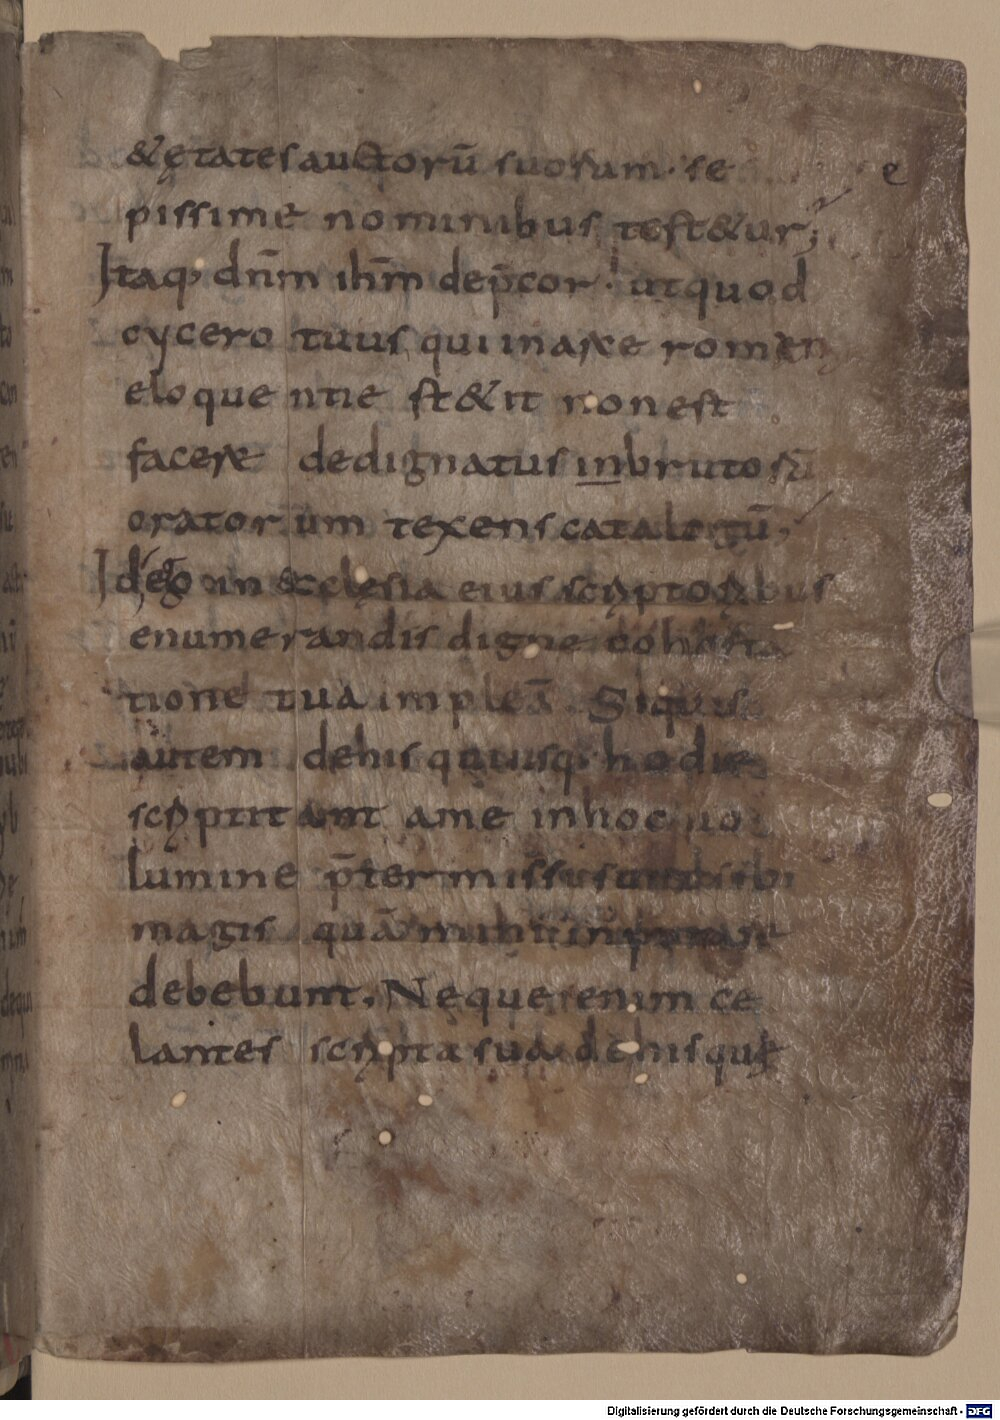 &ętates auctorū suorum· se e
pissime nominibus test&ur;
Itaq; dn̄m ih̄m dep̄cor· ut quod
cycero tuus qui in arce romane
eloquentie st&it non est
facere dedignatus in bruto
oratorum texens catalogū;
Id ego in &clęsia eius scriptoribus
enumerandis digne cohorta
tione tua impleā. Siquis
autem dehis qui usq; hodie
scriptitant ame inhoc uo
lumine p̄termissus sibi
magis quā mihi
debebunt. Neque enim ce
lantes scripta sua dehis quę
Digitalisierung gefördert durch die Deutsche Forschungsgemeinschaft - DFG